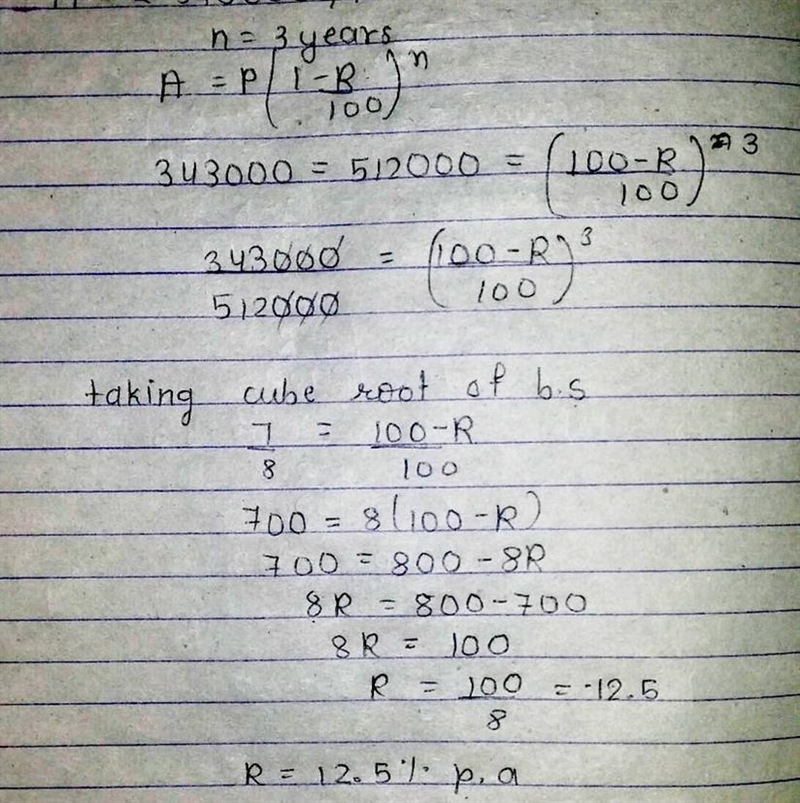 n = 3 years
A = P(1 - R/100)^n
343000 = 512000 = (100 - R/100)^3
343000/512000 = (100 - R/100)^3
taking cube root of b.s
7/8 = 100 - R/100
700 = 8(100 - R)
700 = 800 - 8R
8R = 800 - 700
8R = 100
R = 100/8 = 12.5
R = 12.5% p.a